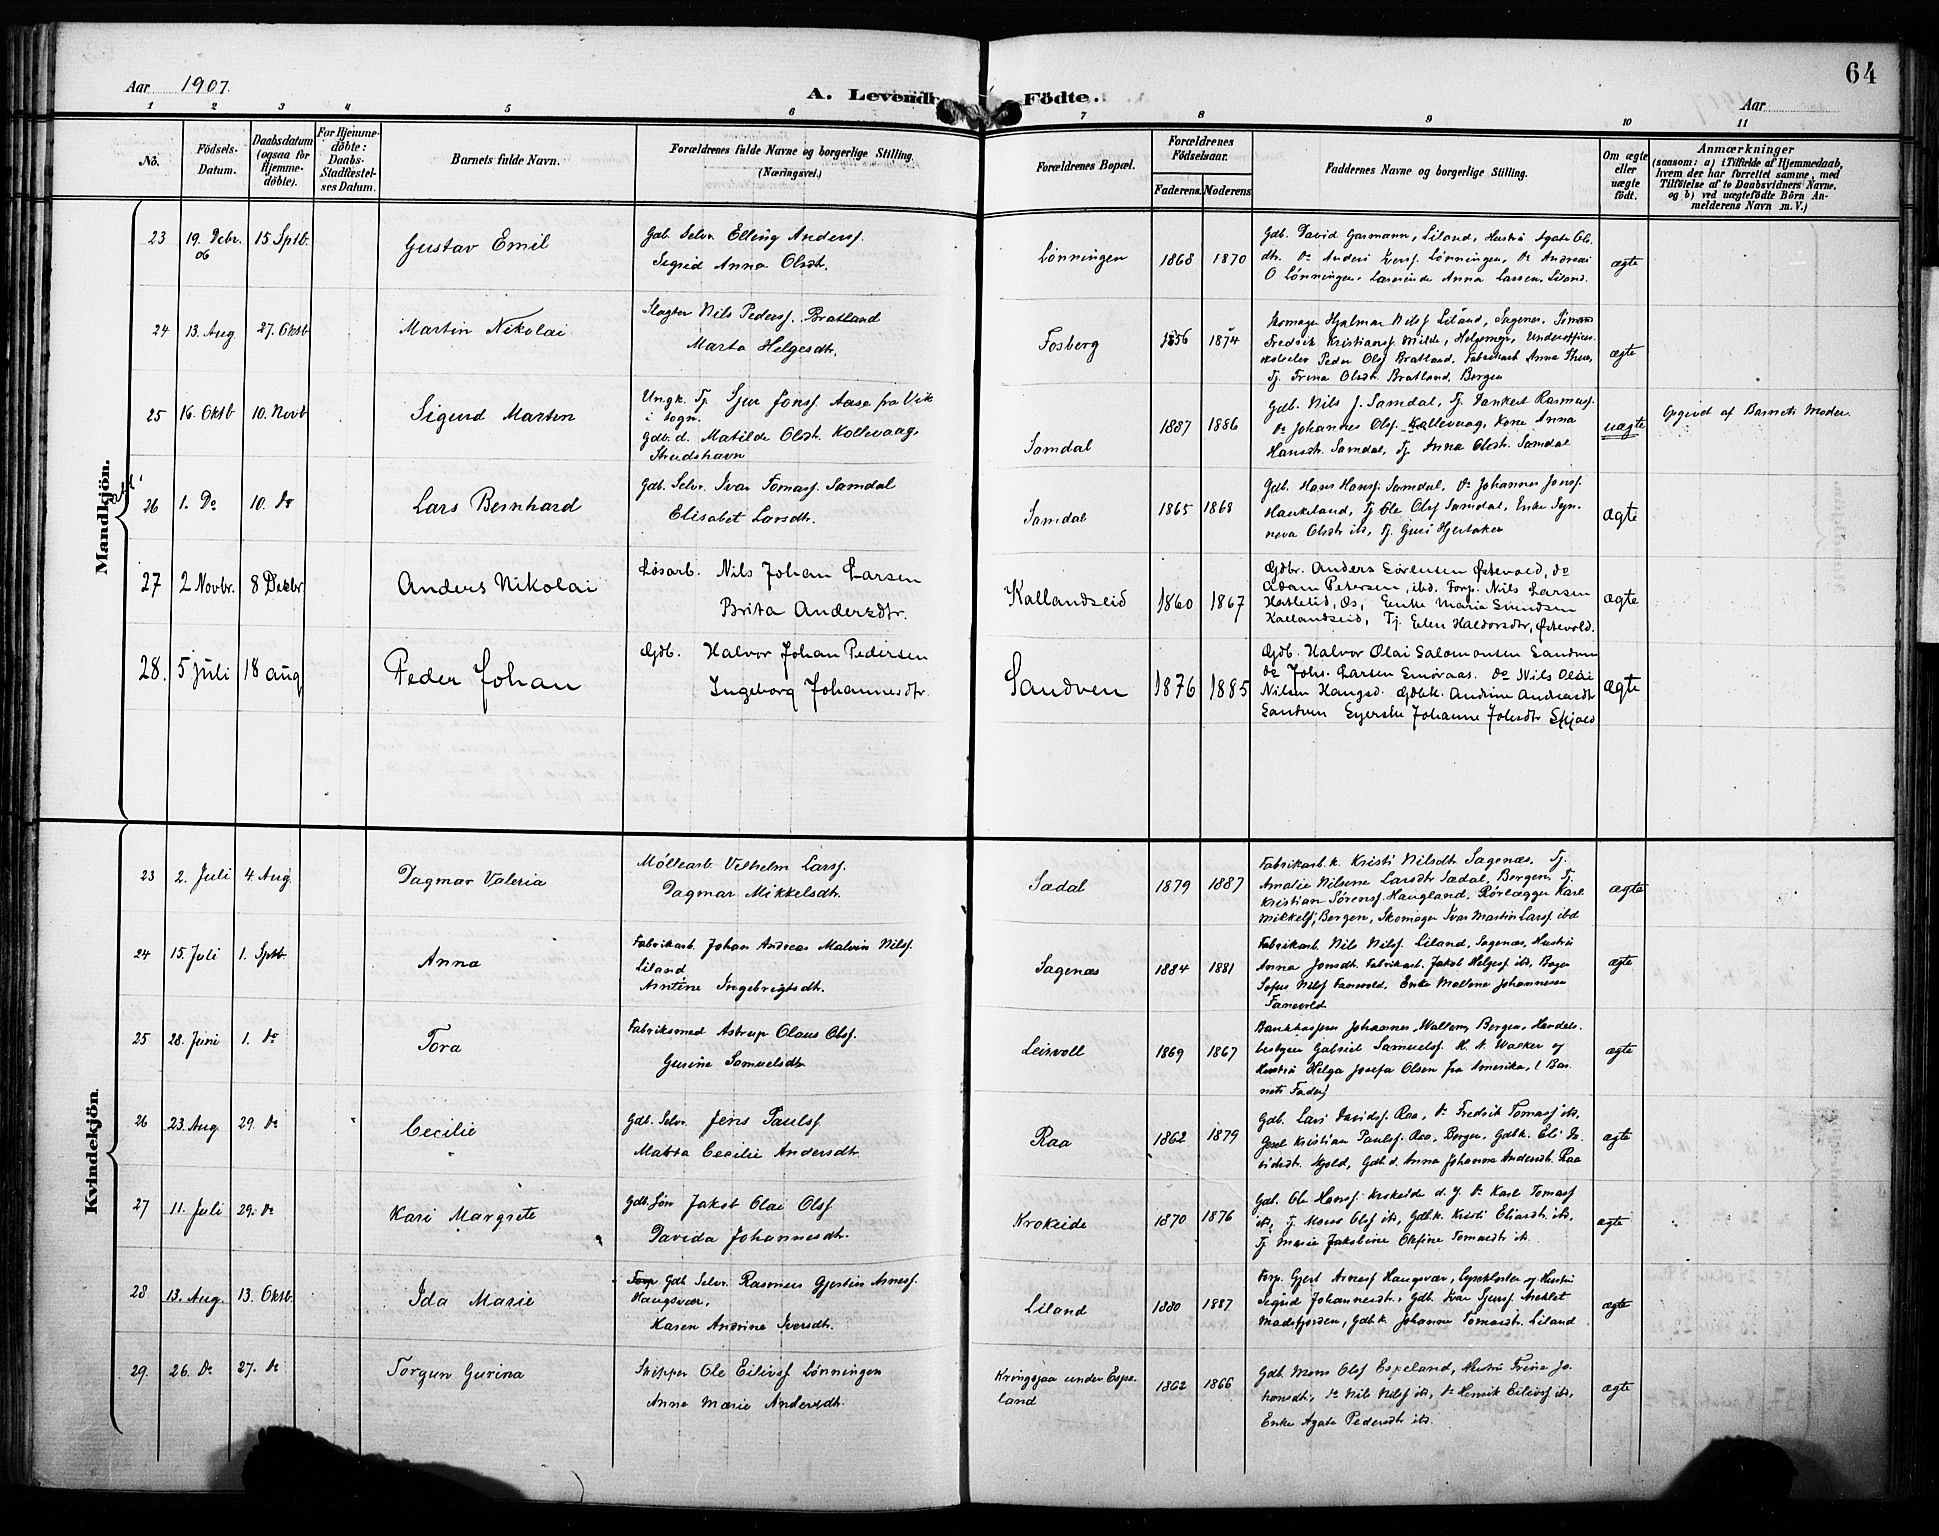 Aar 1907.
A. Levende Födte.
64
Aar
1 2 3 4 5 6 7 8 9 10 11
No.
Födsels-Datum.
Daabsdatum (ogsaa for Hjemmedöbte).
For Hjemmedöbte: Daabs-Stadfæstelses Datum.
Barnets fulde Navn.
Forældrenes fulde Navne og borgerlige Stilling. (Næringsvei.)
Forældrenes Bopæl.
Forældrenes Födselsaar.
Faderens. Moderens.
Faddernes Navne og borgerlige Stilling.
Om ægte eller uægte födt.
Anmærkninger
(saasom: a) i Tilfælde af Hjemmedaab, hvem der har forrettet samme, med Tilföielse af to Daabsvidners Navne. og b) ved uægtefödte Börn Anmelderens Navn m. V.)
Mandkjön.
23 19. Febr. 06 15 Sptb. Gustav Emil
Gdb. Selv. Elling Anderss.
Sigrid Anna Olsdt.
Lønningen 1868 1870
Gdb. David Garmann, Liland, Hustru Agate Ols
dtr. Do Anders Iverss. Lønningen, Do Andreas
O Lønningen, Lærerinde Anna Lassen, Liland.
ægte
24 13. Aug. 27. Oktb Martin Nikolai
Slagter Nils Peders. Bratland
Marta Helgesdt.
Fosberg 1856 1874
Skomager Hjalmar Nilss Liland, Sagenes,
Fredrik Kristianss. Milde, Underoffics.
Peder Olss Bratland, Fabrikarb Anna
Tj. Trina Olsdt. Bratland, Bergen
ægte
25 16. Oktb 10. Novb Sigurd Martin
Ungk. Tj. Sjur Jonss. Aase fra Vik
i Sogn.
Gdb. d. Matilde Olsdt. Kollevaag,
Strudshavn
Samdal 1887 1886
Gdb. Nils J. Samdal, Tj. Dankert Rasmuss.
Do Johannes Olss. Kollevaag, Kone Anna
Hansdt. Samdal, Tj. Anna Olsdt. Samdal
uægte
Opgivet af Barnets Moder.
26 1. Do 10. Do Lars Bernhard
Gdb. Selv. Ivar Tomass. Samdal
Elisabet Larsdt.
Samdal 1865 1868
Gdb. Hans Hanss. Samdal, Do Johannes Jonss.
Haukeland, Tj Ole Olss Samdal, Enke Syn-
neva Olsdt ibd, Tj. Guri Hjertaker
ægte
27 2 Novbr. 8 Decbr. Anders Nikolai
Løsarb. Nils Johan Larsen
Brita Andersdtr.
Kallandseid 1860 1867
Gdbr. Anders Sörensen Østevold, do
Adam Petersen, ibid. Forp. Nils Larsen
Hatlelid, Os, Enke Maria Svendsen
Kallandseid, Tj. Elen Haldorsdtr, Østevold.
ægte
28. 5 juli 18 aug Peder Johan
Gdb. Halvor Johan Pedersen
Ingeborg Johannesdtr.
Sandven 1876 1885
Gdb. Halvor Olai Salomonsen Sandven
do Johs. Larsen Smøraas. do Nils Olai
Nilsen Haugsd. Gdbk. Andrine Andreasdtr
Sandven Syerske Johanne Johsdtr Skjold
ægte
Kvindekjön.
23 2. Juli 4. Aug. Dagmar Valeria
Møllearb Vilhelm Larss.
Dagmar Mikkelsdtr.
Sædal 1879 1887
Fabrikarb. k. Kristi Nilsdt. Sagenæs, Tj.
Amalie Nilsine Larsdtr Sædal, Bergen, Tj.
Kristian Sørenss. Haugland, Rørlægger Karl
Mikkels, Bergen, Skomager Ivar Martin Larss. ibd
ægte
24 15. Juli 1. Sptb. Anna
Fabrikarb. Johan Andreas Malvin Nilss.
Liland
Antine Ingebrigtsdt.
Sagenæs 1884 1881
Fabrikarb. Nils Nilss. Liland, Sagenæs, Hustru
Anna Jonsdt. Fabrikarb. Jakob Helgess ibd, Bager
Sofus Nilss Fanevold, Enke Malene Johannesen
Fanevold
ægte
25 28. Juni 1. Do Tora
Fabriksmed Astrup Olaus Olss.
Gurine Samuelsdt
Leisvoll 1869 1867
Bankkasserer Johannes Wallem, Bergen, Handels-
bestyrer Gabriel Samuelss. H. A. Walker og
Hustru Helga Josefa Olsen fra Amerika, (Bar
nets Fader)
ægte
26 23. Aug. 29. Do Cecilie
Gdb. Selv. Jens Paulss
Marta Cecilie Andersdtr.
Raa 1862 1879
Gdb. Lars Davidss. Raa, Do Fredrik Tomass ibd,
Gesel Kristian Paulss. Raa, Bergen, Gdbk. Eli Da
vidsdt. Skjold, Gdb. d. Anna Johanna Andersdt. Raa
ægte
27 11. Juli 29. Do Kari Margrete
Gdb. Søn Jakob Olai Olss
Davida Johannesdtr.
Krokeide 1870 1876
Gdb. Ole Hanss. Krokeide d. y. Do Karl Tomass
ibd, Tj. Mons Olss ibd, Gdbk. Kristi Eliasdt. ibd,
Tj Marie Jakobine Olefine Tomasdt ib.
ægte
28 13. Aug. 13. Oktb. Ida Marie
Forp Gdb Selv. Rasmus Gjertin Arness.
Haugsvær,
Karen Andrine Iversdt.
Liland 1880 1887
Forp. Gjert Arness Haugsvær, Lysekloster og Hustru
Sigrid Johannesdt, Gdb. Ivar Sjurss. Areklet
Madsfjorden, Gdbk. Johanne Tomasdt. Liland
ægte
29. 26. Do 27. Do Torgun Gurina
Skipper Ole Eilivss Lønningen
Anne Marie Andersdt.
Kringsjaa under Espe-
land 1862 1866
Gdb. Mons Olss Espeland, Hustru Trine Jo
honsdt, Do Nils Nilss ibd, Do Henrik Eilivss ibd,
Enke Agate Pedersdt ibd.
ægte